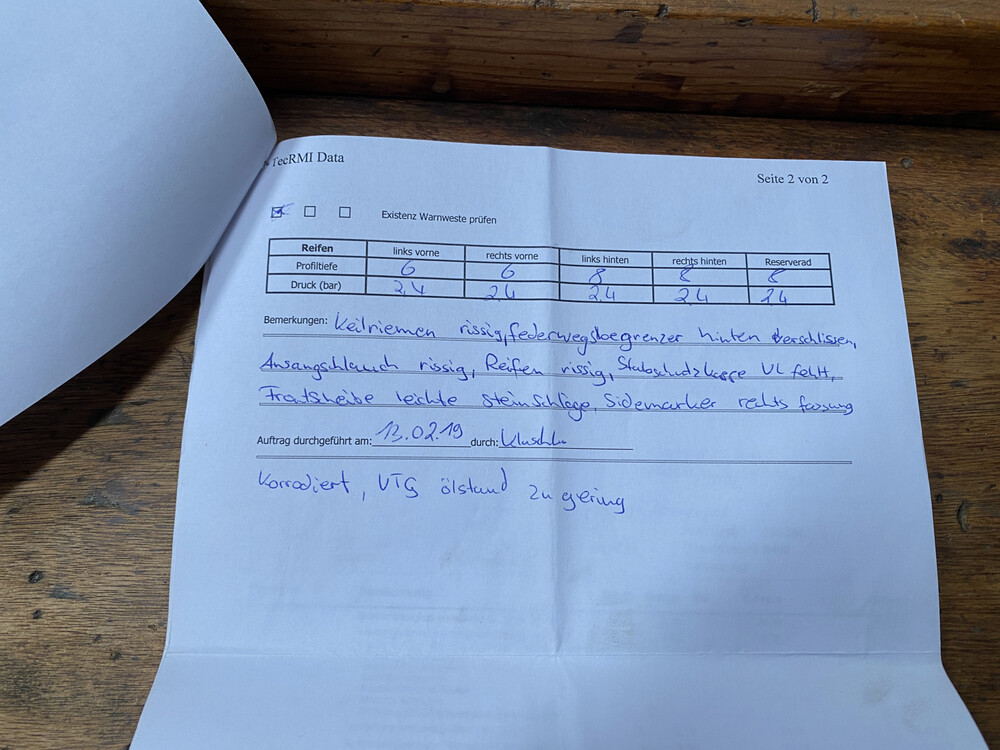 TecRMI Data
Seite 2 von 2
Existenz Warnweste prüfen
Reifen links vorne rechts vorne links hinten rechts hinten Reserverad
Profiltiefe 6 6 8 8 8
Druck (bar) 2,4 2,4 2,4 2,4 2,4
Bemerkungen: Keilriemen rissig, federwegsbegrenzer hinten verschlissen,
Ansangschlauch rissig, Reifen rissig, Staubschutzkappe VL fehlt,
Frontsheibe leichte steinschläge, Sidemarker rechts fassung
Auftrag durchgeführt am: 13.02.19 durch:
Korrodiert, VTG ölstand zu gering